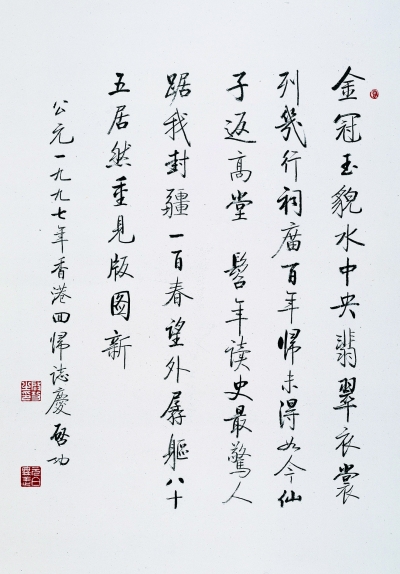 金冠玉貌水中央翡翠衣裳
列幾行祠廟百年歸未得如今仙
子返高堂 髫年讀史最驚人
踞我封疆一百春望外孱軀八十
五居然重見版圖新
公元一九九七年香港回歸誌慶 啓功